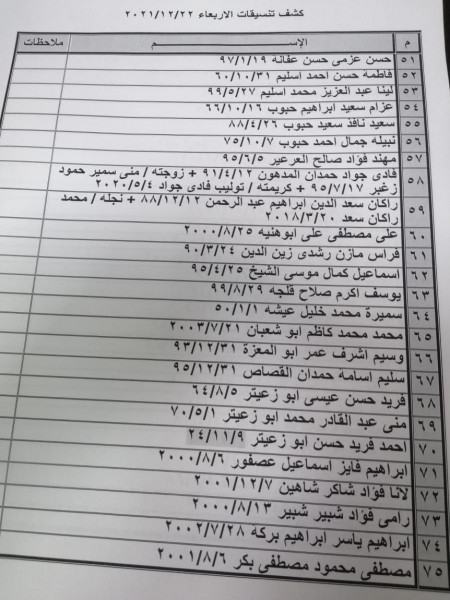 كشف تنسيقات الاربعاء ٢٠٢١/١٢/٢٢
م الإســـــــم ملاحظات
٥١ حسن عزمى حسن عفانة ٩٧/١/١٩
٥٢ فاطمة حسن احمد اسليم ٦٠/١٠/٣١
٥٣ لينا عبد العزيز محمد اسليم ٩٩/٥/٢٧
٥٤ عزام سعيد ابراهيم حبوب ٦٦/١٠/١٦
٥٥ سعيد نافذ سعيد حبوب ٨٨/٤/٢٦
٥٦ نبيله جمال احمد حبوب ٧٥/١٠/٧
٥٧ مهند فؤاد صالح العرعير ٩٥/٦/٥
٥٨ فادى جواد حمدان المدهون ٩١/٤/١٢ + زوجته / منى سمير حمود
زغبر ٩٥/٧/١٧ + كريمته / توليب فادى جواد ٢٠٢٠/٥/٤
٥٩ راكان سعد الدين ابراهيم عبد الرحمن ٨٨/١٢/١٢ + نجله / محمد
راكان سعد ٢٠١٨/٣/٢٠
٦٠ على مصطفى على ابوهنيه ٢٠٠٠/٨/٢٥
٦١ فراس مازن رشدى زين الدين ٩٠/٣/٢٤
٦٢ اسماعيل كمال موسى الشيخ ٩٥/٤/٢٥
٦٣ يوسف اكرم صلاح قلجه ٩٩/٨/٢٩
٦٤ سميرة محمد خليل عيشه ٥٠/١/١
٦٥ محمد محمد كاظم ابو شعبان ٢٠٠٣/٧/٢١
٦٦ وسيم اشرف عمر ابو المعزة ٩٣/١٢/٣١
٦٧ سليم اسامه حمدان القصاص ٩٥/١٢/٣١
٦٨ فريد حسن عيسى ابو زعيتر ٦٤/٨/٥
٦٩ منى عبد القادر محمد ابو زعيتر ٧٠/٥/١
٧٠ احمد فريد حسن ابو زعيتر ٢٤/١١/٩
٧١ ابراهيم فايز اسماعيل عصفور ٢٠٠٠/٨/٦
٧٢ لانا فؤاد شاكر شاهين ٢٠٠١/١٢/٧
٧٣ رامى فؤاد شبير شبير ٢٠٠٠/٨/١٣
٧٤ ابراهيم ياسر ابراهيم بركه ٢٠٠٢/٧/٢٨
٧٥ مصطفى محمود مصطفى بكر ٢٠٠١/٨/٦